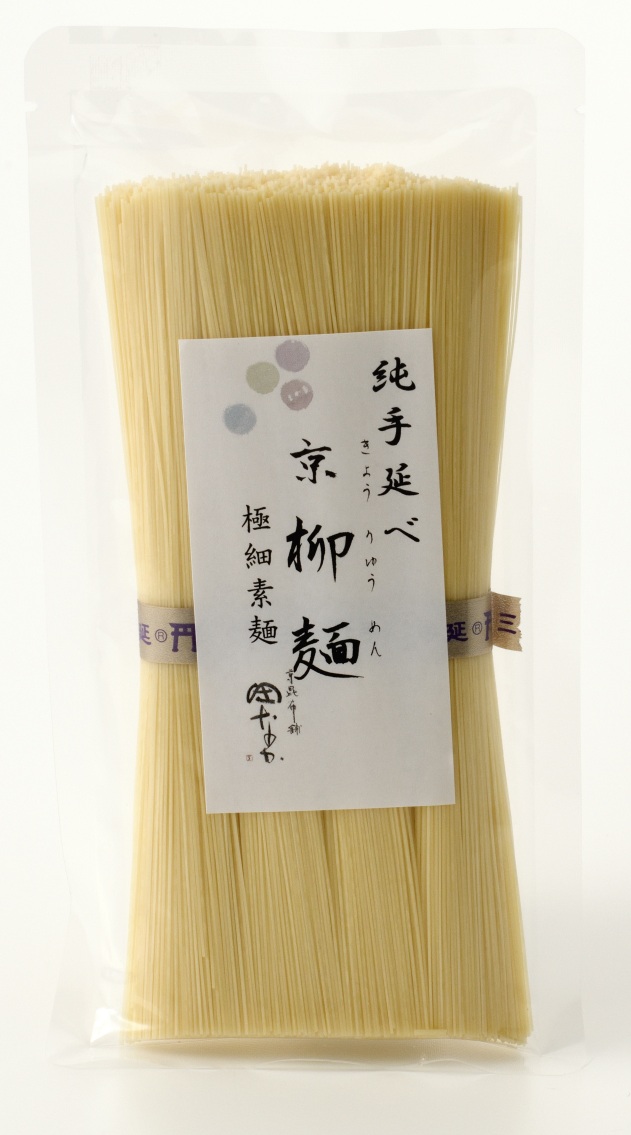 純手延べ
きょうりゅうめん
京柳麺
極細素麺
京昆布舗
田なか
延®
三